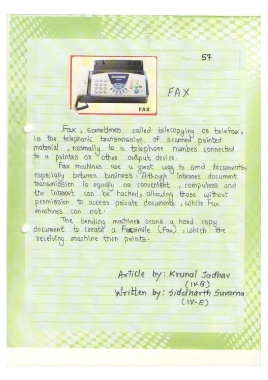 57
FAX
FAX
Fax, sometimes called telecopying or telefax,
is the telephonic transmission of scanned printed
material, normally to a telephone number connected
to a printer or other output device.
Fax machines are a great way to send documents,
especially between business. Although internet document
transmission is equally as convenient, computers and
the internet can be hacked, allowing those without
premission to access private documents, while Fax
machines can not.
The sending machines scans a hard copy
document to create a Facsimile (Fax), which the
receiving machine then prints.
Article by: Krunal Jadhav
(IV-B)
Written by: Siddharth Suvarna
(IV-E)